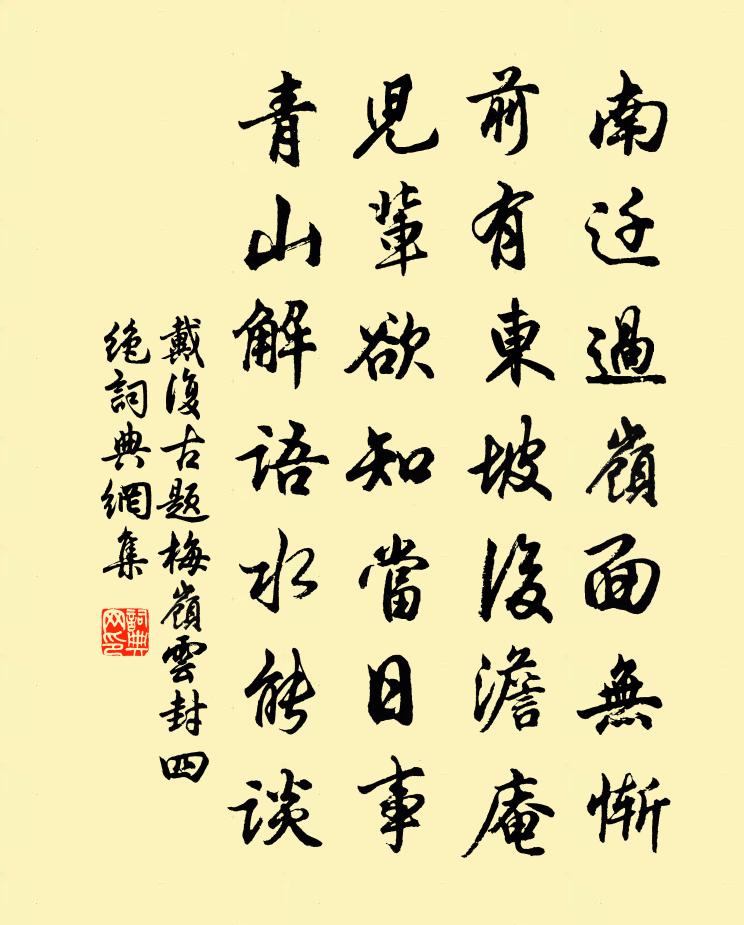 南迁過嶺面無慚
前有東坡後澹庵
兒輩欲知當日事
青山解語水能談
戴復古題梅嶺雲封四
絶詞典網集
詞典
网印